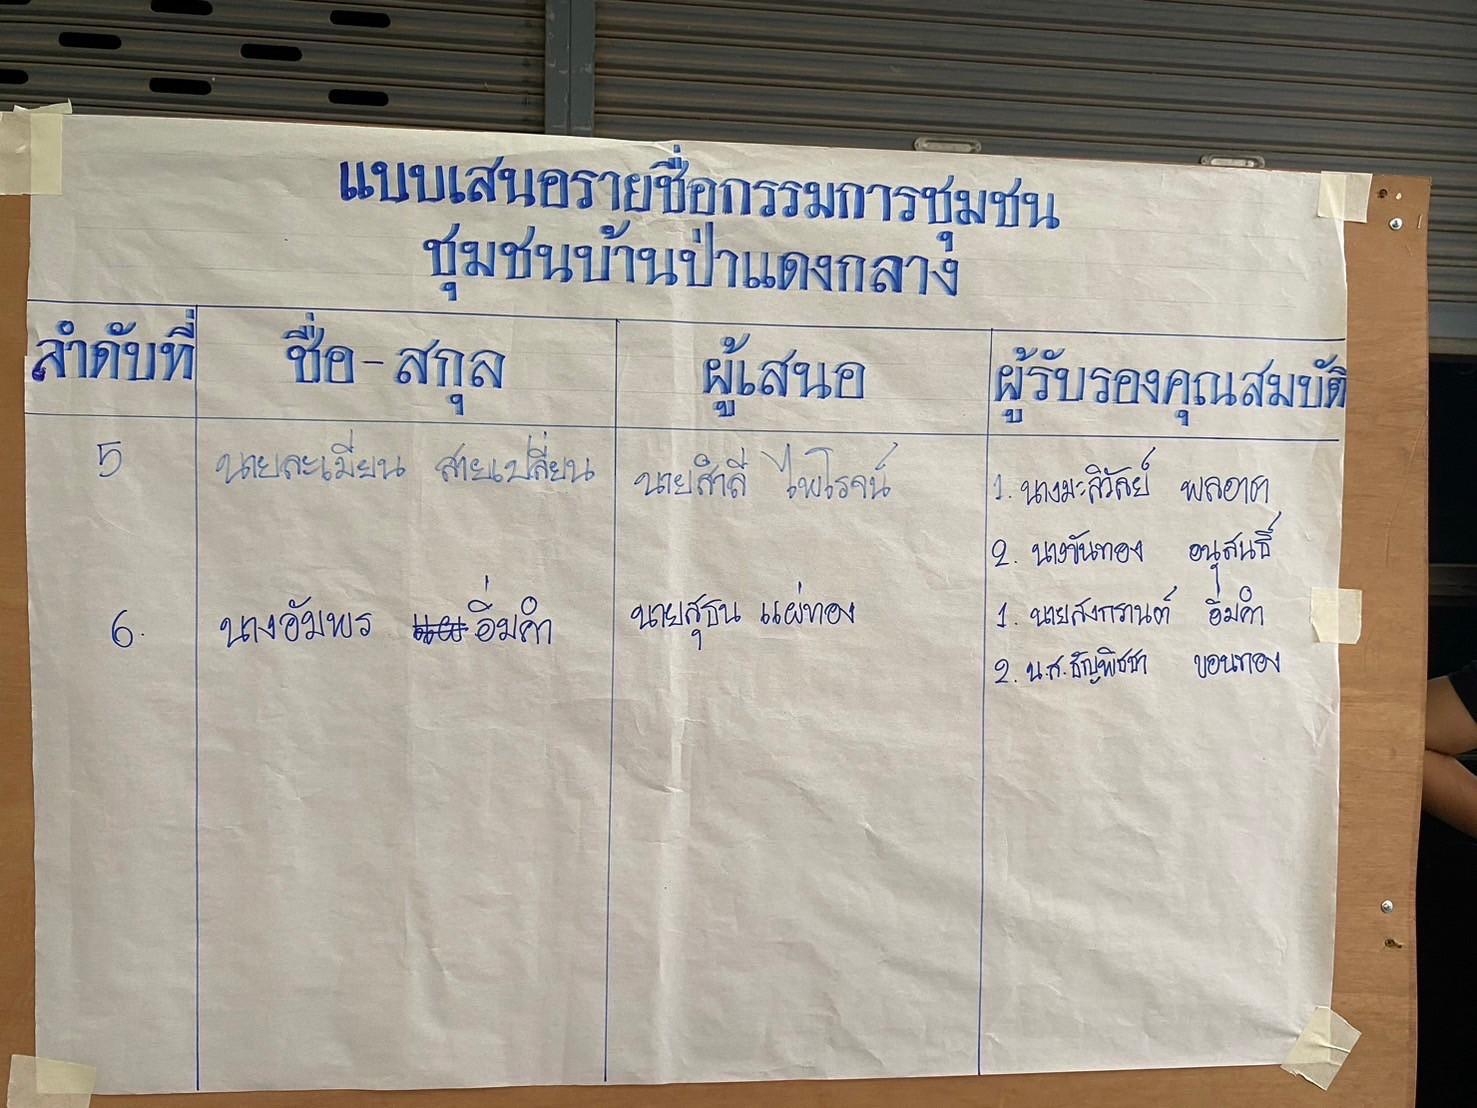 แบบเสนอรายชื่อกรรมการชุมชน
ชุมชนบ้านป่าแดงกลาง
ลำดับที่ ชื่อ-สกุล ผู้เสนอ ผู้รับรองคุณสมบัติ
5 นายละเมียน สายเปลี่ยน นายสำลี ไพโรจน์ 1. นางมะลิวัลย์ พลอาต
2. นางขันทอง อนุสนธิ์
6. นางอัมพร อิ่มคำ นายสุธน แผ่ทอง 1. นายสงกรานต์ อิ่มคำ
2. น.ส.ธัญพิชชา ขอนทอง